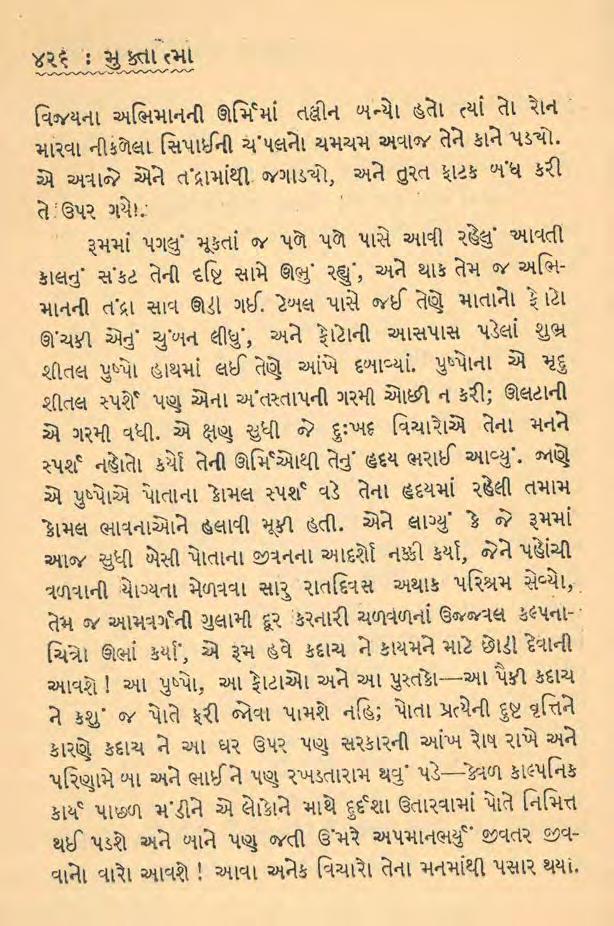 ૪૨૬ : મુક્તાત્મા
વિજયના અભિમાનની ઊર્મિમાં તલ્લીન બન્યો હતો ત્યાં તો રોન
મારવા નીકળેલા સિપાઈની ચંપલનો ચમચમ અવાજ તેને કાને પડ્યો.
એ અવાજે એને તંદ્રામાંથી જગાડ્યો, અને તુરત ફાટક બંધ કરી
તે ઉપર ગયો.
રૂમમાં પગલું મૂકતાં જ પળે પળે પાસે આવી રહેલું આવતી
કાલનું સંકટ તેની દૃષ્ટિ સામે ઊભું રહ્યું, અને થાક તેમ જ અભિ-
માનની તંદ્રા સાવ ઊડી ગઈ. ટેબલ પાસે જઈ તેણે માતાનો ફોટો
ઊંચકી એનું ચુંબન લીધું, અને ફોટોની આસપાસ પડેલાં શુભ્ર
શીતલ પુષ્પો હાથમાં લઈ તેણે આંખે દબાવ્યાં. પુષ્પોના એ મૃદુ
શીતલ સ્પર્શે પણ એના અંતસ્તાપની ગરમી ઓછી ન કરી; ઊલટાની
એ ગરમી વધી. એ ક્ષણ સુધી જે દુઃખદ વિચારોએ તેના મનને
સ્પર્શ નહોતો કર્યો તેની ઊર્મિઓથી તેનું હૃદય ભરાઈ આવ્યું. જાણે
એ પુષ્પોએ પોતાના કોમલ સ્પર્શ વડે તેના હૃદયમાં રહેલી તમામ
કોમલ ભાવનાઓને હલાવી મૂકી હતી. એને લાગ્યું કે જે રૂમમાં
આજ સુધી બેસી પોતાના જીવનના આદર્શો નક્કી કર્યા, જેને પહોંચી
વળવાની યોગ્યતા મેળવવા સારુ રાતદિવસ અથાક પરિશ્રમ સેવ્યો,
તેમ જ આમવર્ગની ગુલામી દૂર કરનારી ચળવળનાં ઉજ્જ્વલ કલ્પના-
ચિત્રો ઊભાં કર્યાં, એ રૂમ હવે કદાચ ને કાયમને માટે છોડી દેવાની
આવશે ! આ પુષ્પો, આ ફોટાઓ અને આ પુસ્તકો—આ પૈકી કદાચ
ને કશું જ પોતે ફરી જોવા પામશે નહિ; પોતા પ્રત્યેની દુષ્ટ વૃત્તિને
કારણે કદાચ ને આ ઘર ઉપર પણ સરકારની આંખ રોષ રાખે અને
પરિણામે બા અને ભાઈને પણ રખડતારામ થવું પડે—કેવળ કાલ્પનિક
કાર્ય પાછળ મંડીને એ લોકોને માથે દુર્દશા ઉતારવામાં પોતે નિમિત્ત
થઈ પડશે અને બાને પણ જતી ઉંમરે અપમાનભર્યું જીવતર જીવ-
વાનો વારો આવશે ! આવા અનેક વિચારો તેના મનમાંથી પસાર થયાં.